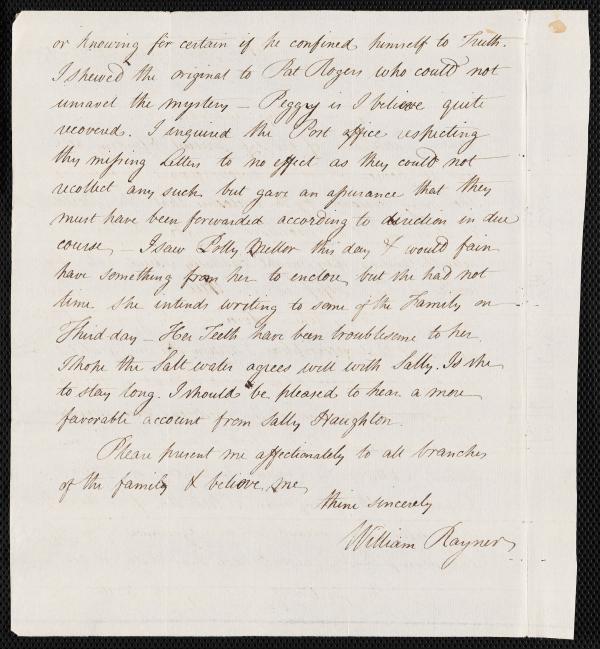 or knowing for certain if he confined himself to Truth.
I shewed the original to Pat Rogers who could not
unravel the mystery — Peggy is I believe quite
recovered. I inquired the Post office respecting
thy missing Letters to no effect as they could not
recollect any such but gave an assurance that they
must have been forwarded according to direction in due
course, — I saw Polly Mellor this day & would fain
have something from her to enclose, but she had not
time she intends writing to some of the Family on
Third day — Her Teeth have been troublesome to her.
I hope the Salt water agrees well with Sally. Is she
to stay long. I should be pleased to hear a more
favorable account from Sally Haughton.
Please present me affectionately to all branches
of the family & believe me,
thine sincerely
William Rayner